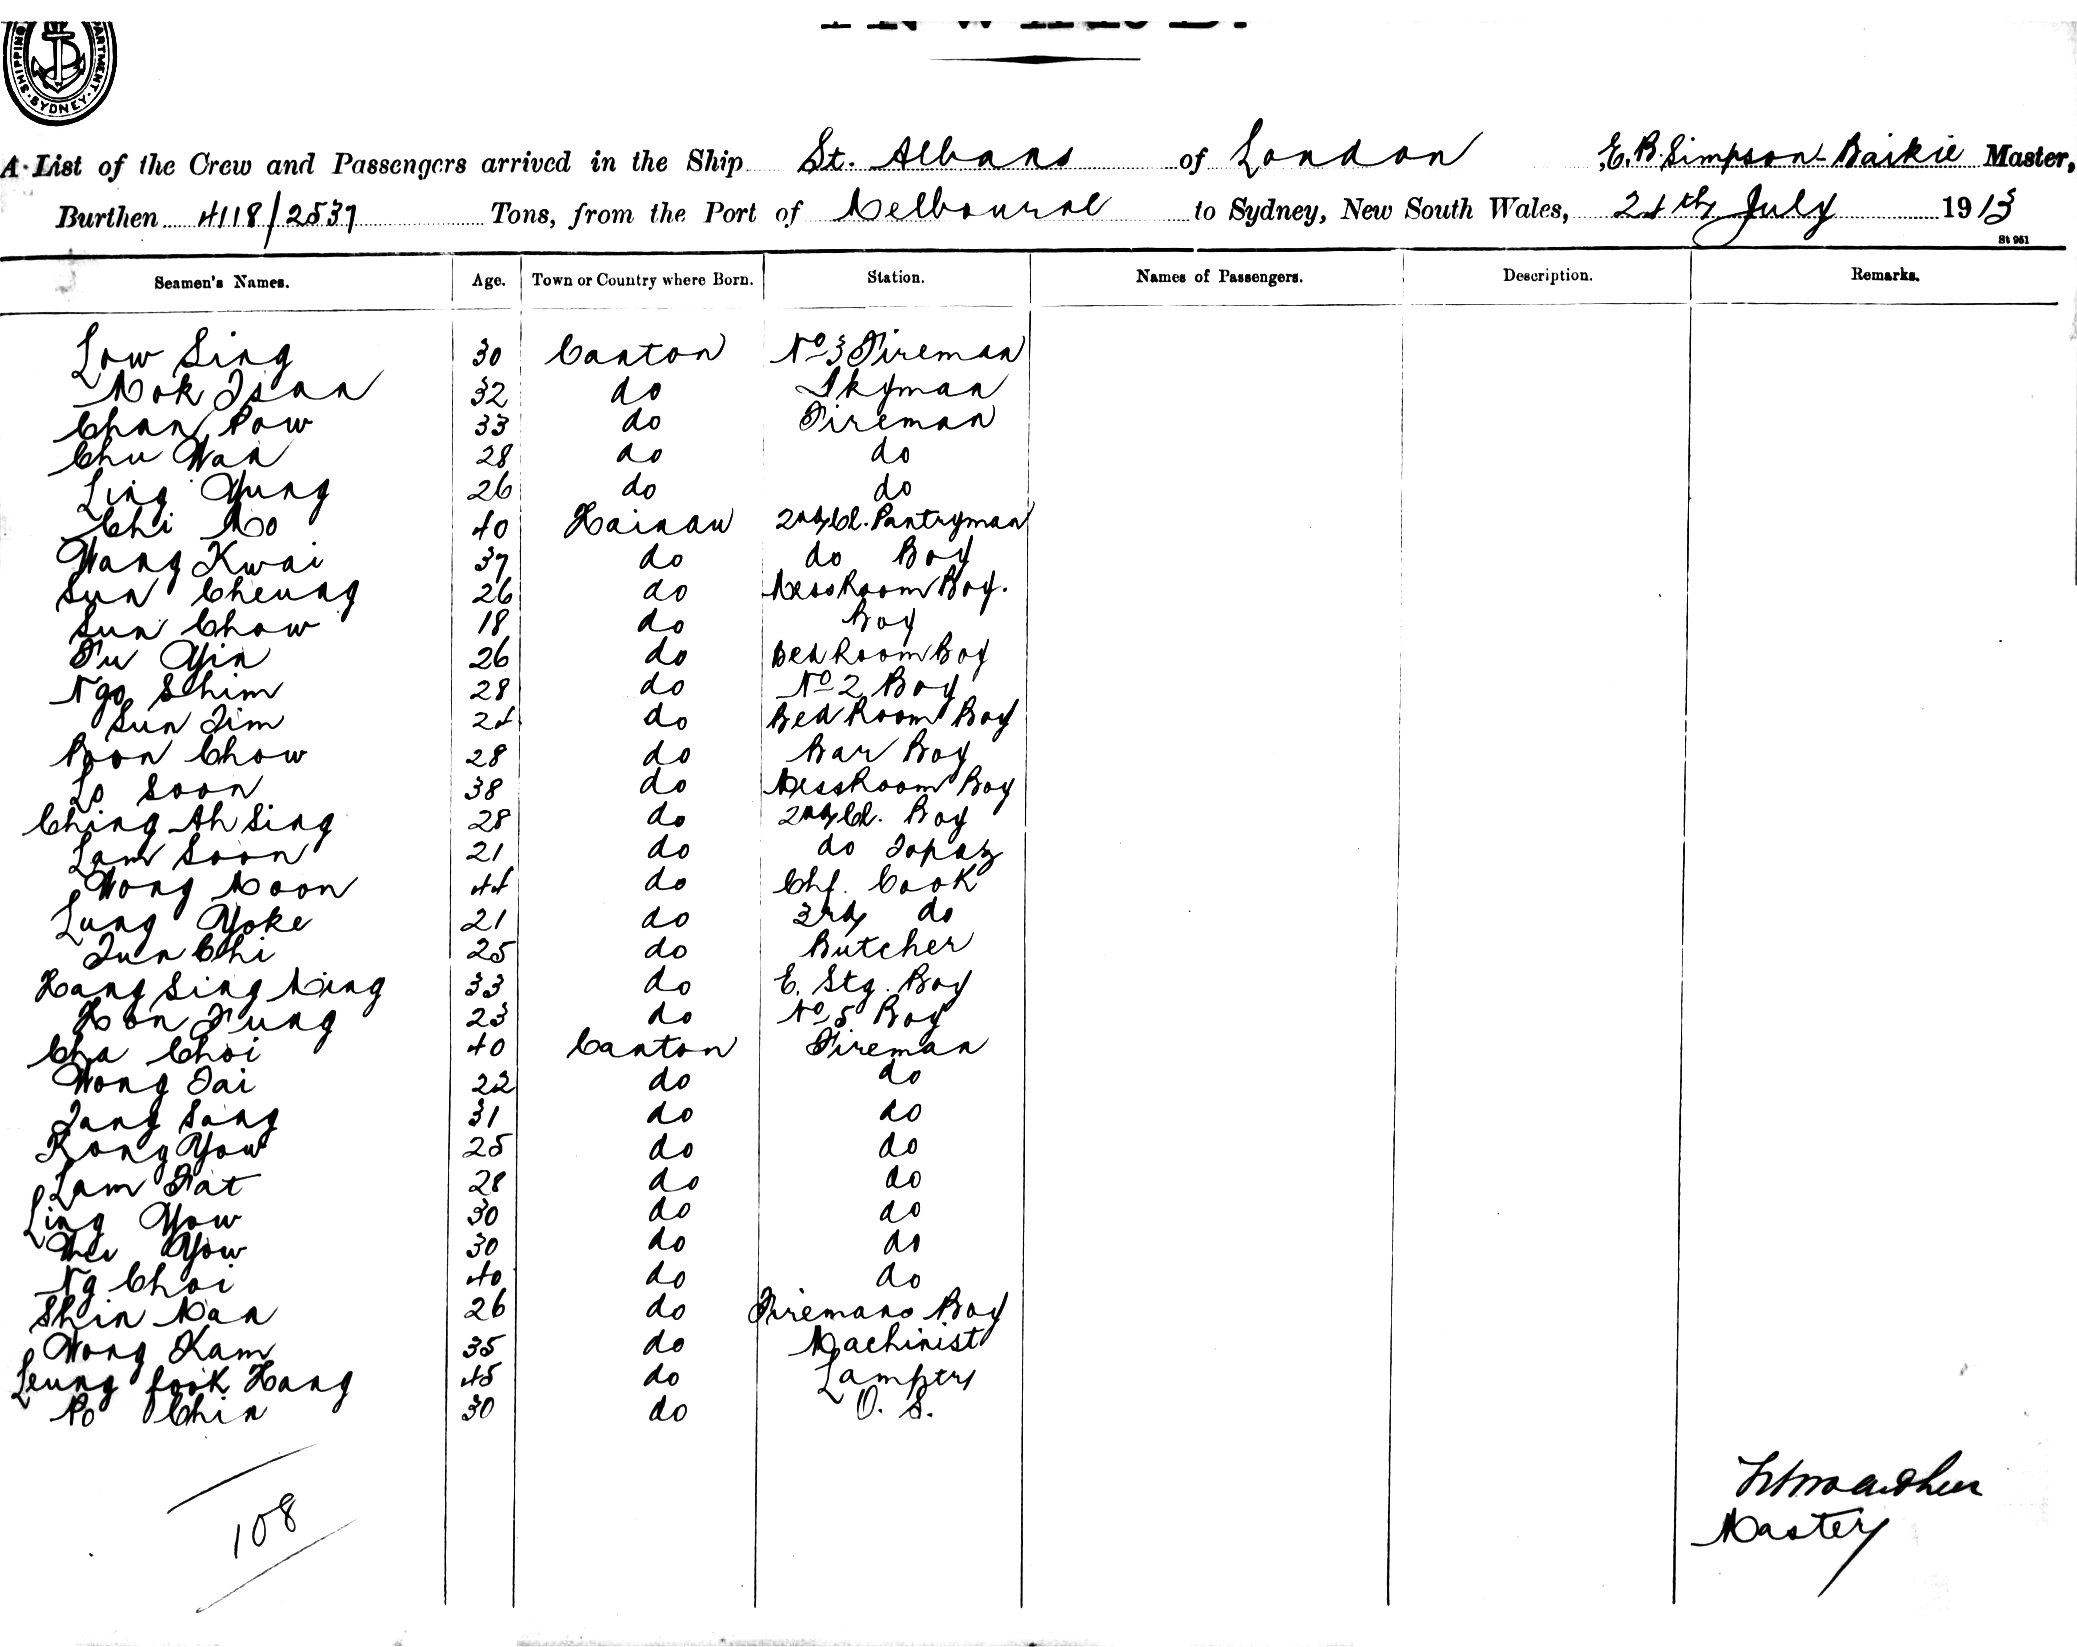 INWARD.
SHIPPING DEPARTMENT SYDNEY
A List of the Crew and Passengers arrived in the Ship St. Albans of London E. B. Simpson-Baikie Master,
Burthen 4118/2537 Tons, from the Port of Melbourne to Sydney, New South Wales, 24th July 1913
St 951
Seamen's Names. Age. Town or Country where Born. Station. Names of Passengers. Description. Remarks.
Low Sing 30 Canton No 3 Fireman
Mok Isan 32 do
Chan Pow 33 do Fireman
Chu Wan 28 do do
Ling Yung 26 do do
Chi Mo 40 Hainan 2nd Cl. Pantryman
Wang Kwai 37 do do Boy
Sun Cheung 26 do Mess Room Boy.
Sun Chow 18 do Boy
Fu Yin 26 do Bed Room Boy
Ngo Shim 28 do No 2 Boy
Sun Tim 24 do Bed Room Boy
Poon Chow 28 do Bar Boy
Lo Soon 38 do Mess Room Boy
Ching Ah Sing 28 do 2nd Cl. Boy
Lam Soon 21 do do Topaz
Wong Moon 44 do Chf. Cook
Lung Yoke 21 do 3rd do
Tun Chi 25 do Butcher
Hang Sing Ming 33 do E. Stg. Boy
Hon Fung 23 do No 5 Boy
Cha Choi 40 Canton Fireman
Wong Tai 22 do do
Tang Sang 31 do do
Kong Yow 25 do do
Lam Fat 28 do do
Ling Yow 30 do do
Yow 30 do do
Ng Choi 40 do do
Shin Man 26 do Firemans Boy
Wong Kam 35 do Machinist
Leung fook Hang 45 do Lamptr
Po Chin 30 do O. S.
108
Master